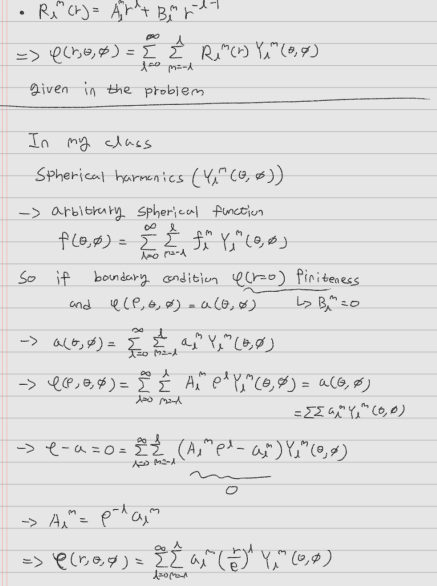 • Rₗᵐ(r) = Aₗᵐ rˡ + Bₗᵐ r⁻ˡ⁻¹
=> φ(r,θ,ø) = Σₗ₌₀^∞ Σₘ₌₋ₗ^l Rₗᵐ(r) Yₗᵐ(θ,ø)
given in the problem
In my class
Spherical harmonics (Yₗᵐ(θ,ø))
-> arbitrary spherical function
f(θ,ø) = Σₗ₌₀^∞ Σₘ₌₋ₗ^l fₗᵐ Yₗᵐ(θ,ø)
So if boundary condition φ(r=0) finiteness
and φ(ρ,θ,ø) = a(θ,ø) ↳ Bₗᵐ=0
-> a(θ,ø) = Σₗ₌₀^∞ Σₘ₌₋ₗ^l aₗᵐ Yₗᵐ(θ,ø)
-> φ(ρ,θ,ø) = Σₗ₌₀^∞ Σₘ₌₋ₗ^l Aₗᵐ ρˡ Yₗᵐ(θ,ø) = a(θ,ø)
= ΣΣ aₗᵐ Yₗᵐ(θ,ø)
-> φ-a = 0 = Σₗ₌₀^∞ Σₘ₌₋ₗ^l (Aₗᵐ ρˡ - aₗᵐ) Yₗᵐ(θ,ø)
0
-> Aₗᵐ = ρ⁻ˡ aₗᵐ
=> φ(r,θ,ø) = Σₗ₌₀^∞ Σₘ₌₋ₗ^l aₗᵐ (r/ρ)ˡ Yₗᵐ(θ,ø)